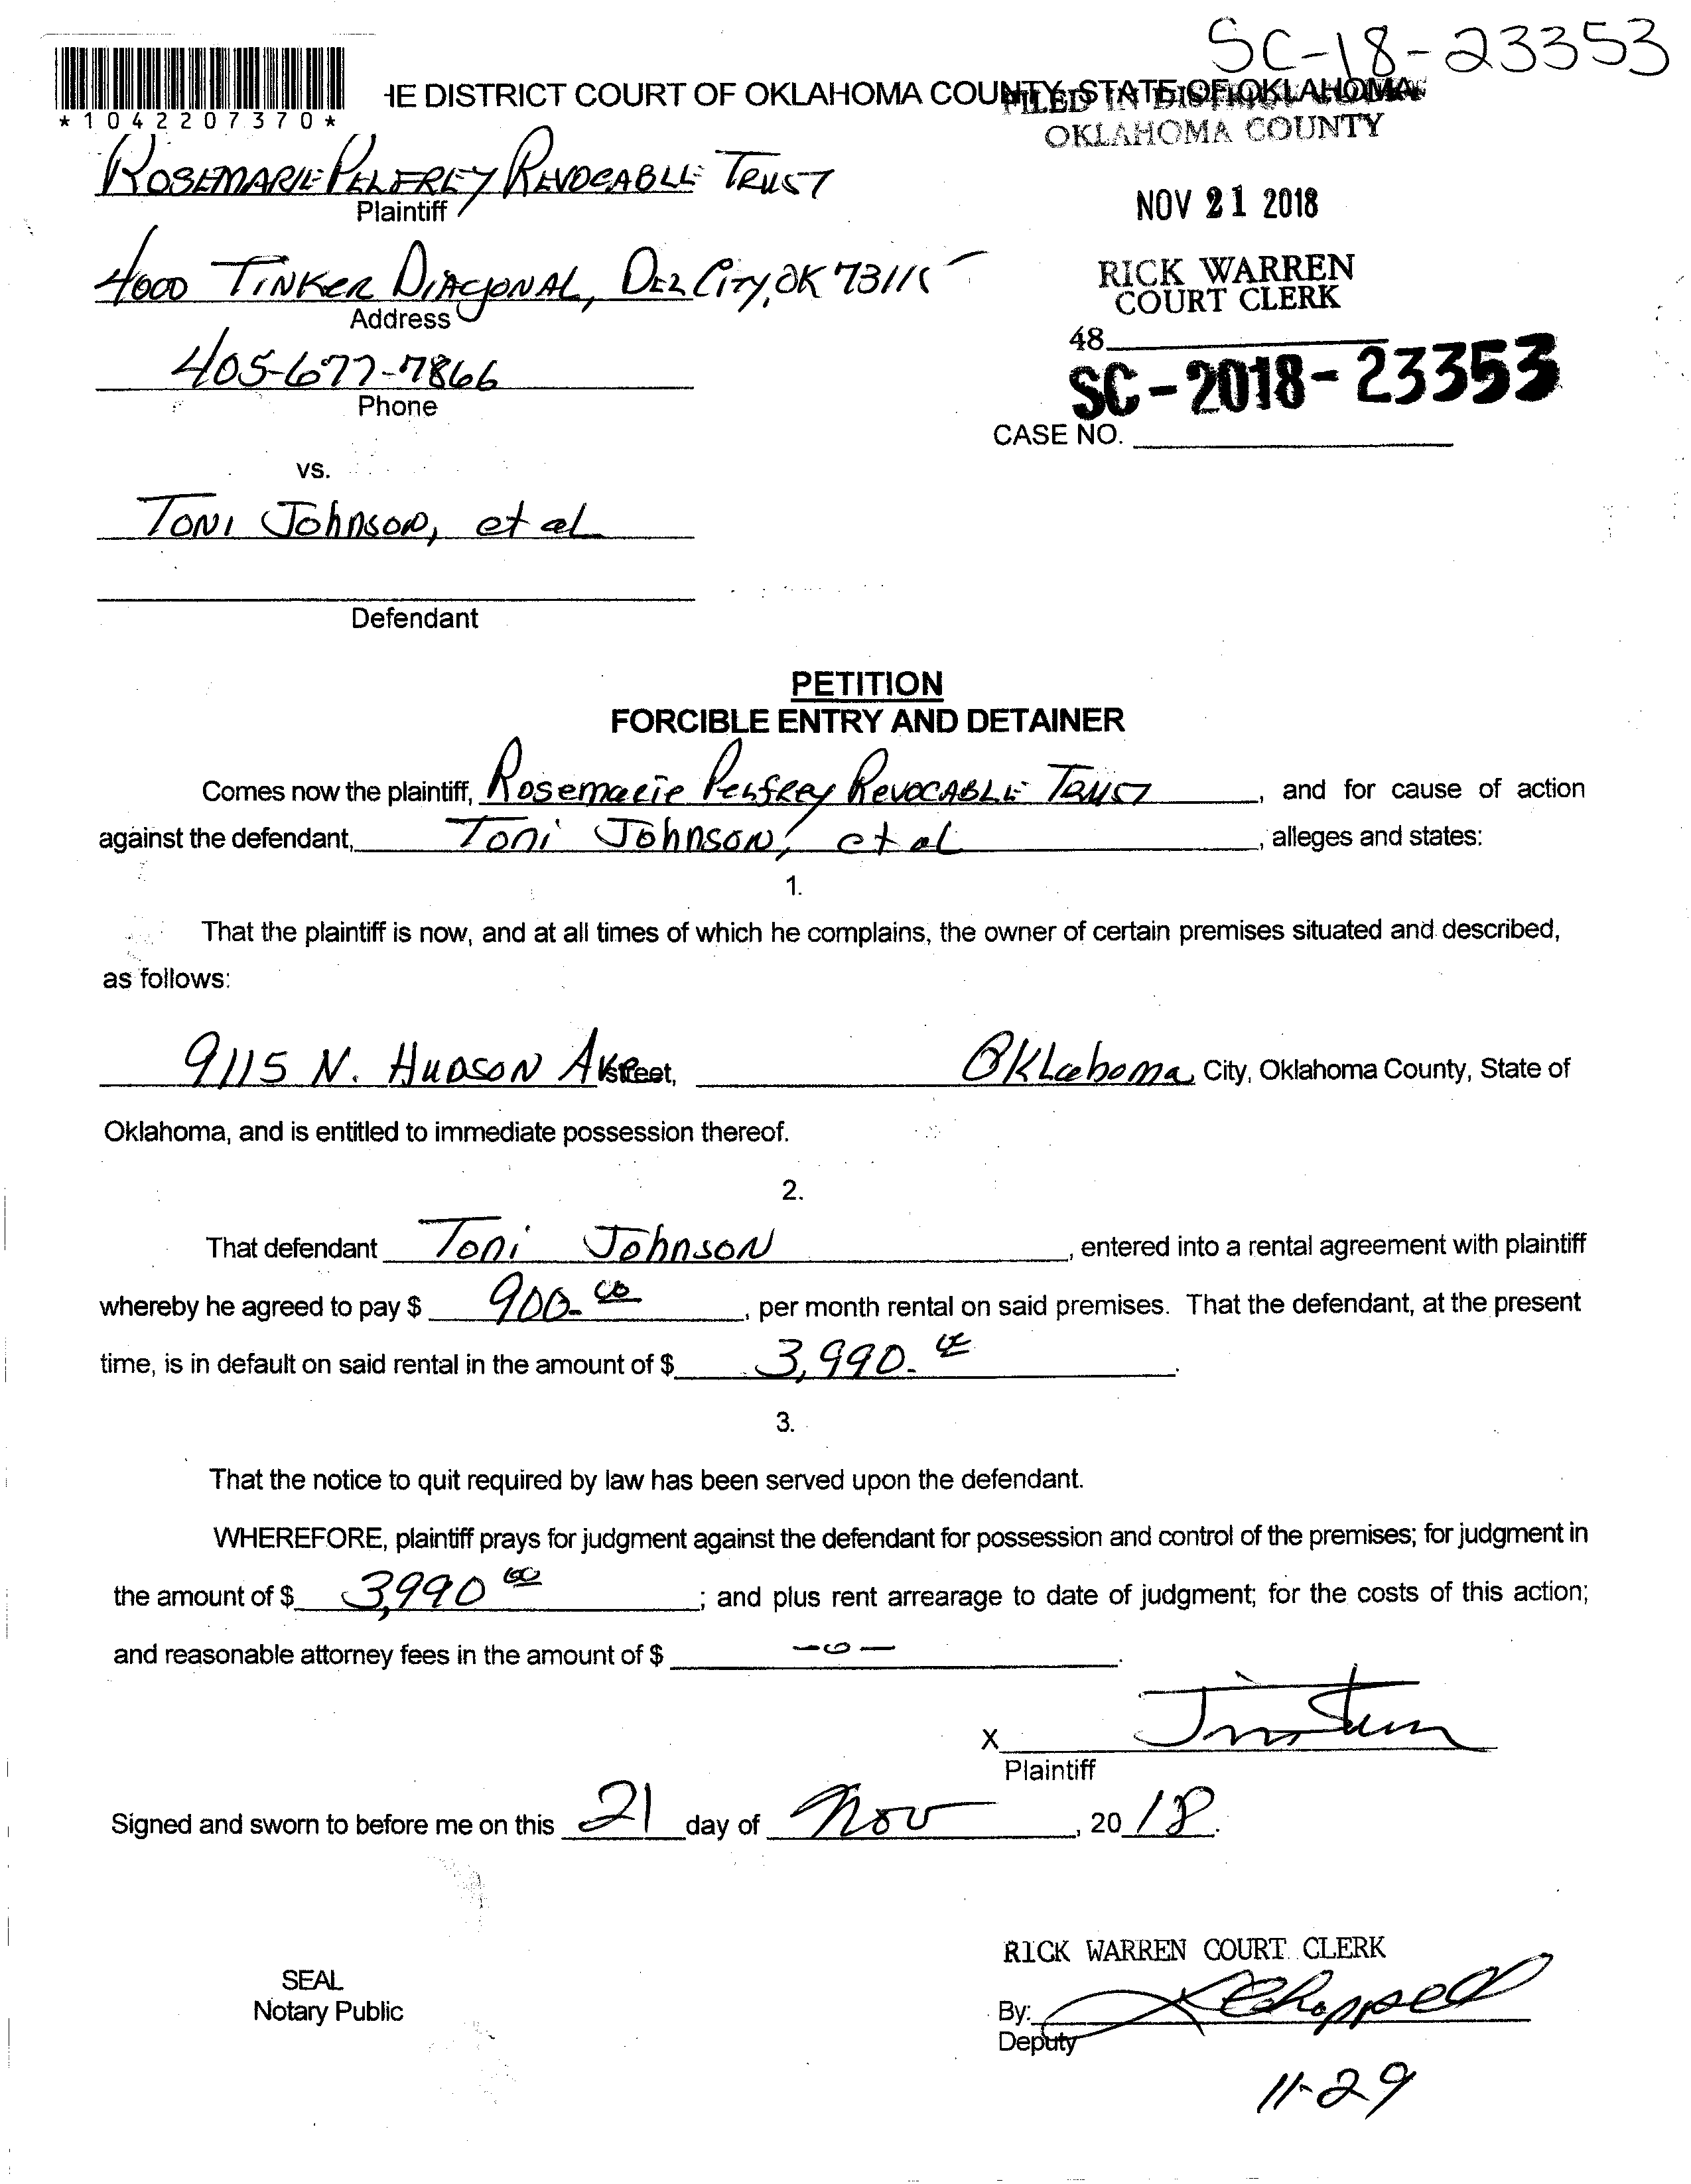 SC-18-23353
HE DISTRICT COURT OF OKLAHOMA COUNTY, STATE OF OKLAHOMA
FILED IN DISTRICT
*1042207370*
OKLAHOMA COUNTY
ROSEMARIE PELFREY REVOCABLE TRUST
Plaintiff
NOV 21 2018
4000 TINKER DIAGONAL, DEL CITY, OK 73115
Address
RICK WARREN
COURT CLERK
405-677-7866
Phone
48
SC-2018-23353
CASE NO.
vs.
TONI JOHNSON, et al
Defendant
PETITION
FORCIBLE ENTRY AND DETAINER
Comes now the plaintiff, Rosemarie Pelfrey REVOCABLE TRUST, and for cause of action
against the defendant, Toni JOHNSON, et al, alleges and states:
1.
That the plaintiff is now, and at all times of which he complains, the owner of certain premises situated and described,
as follows:
9115 N. HUDSON Ave Street, Oklahoma City, Oklahoma County, State of
Oklahoma, and is entitled to immediate possession thereof.
2.
That defendant Toni JOHNSON, entered into a rental agreement with plaintiff
whereby he agreed to pay $ 900.00, per month rental on said premises. That the defendant, at the present
time, is in default on said rental in the amount of $ 3,990.
3.
That the notice to quit required by law has been served upon the defendant.
WHEREFORE, plaintiff prays for judgment against the defendant for possession and control of the premises; for judgment in
the amount of $ 3,990 00; and plus rent arrearage to date of judgment; for the costs of this action;
and reasonable attorney fees in the amount of $ -0-.
X
Plaintiff
Signed and sworn to before me on this 21 day of Nov, 20 18.
RICK WARREN COURT CLERK
SEAL
Notary Public
By: Chappell
Deputy
11-29